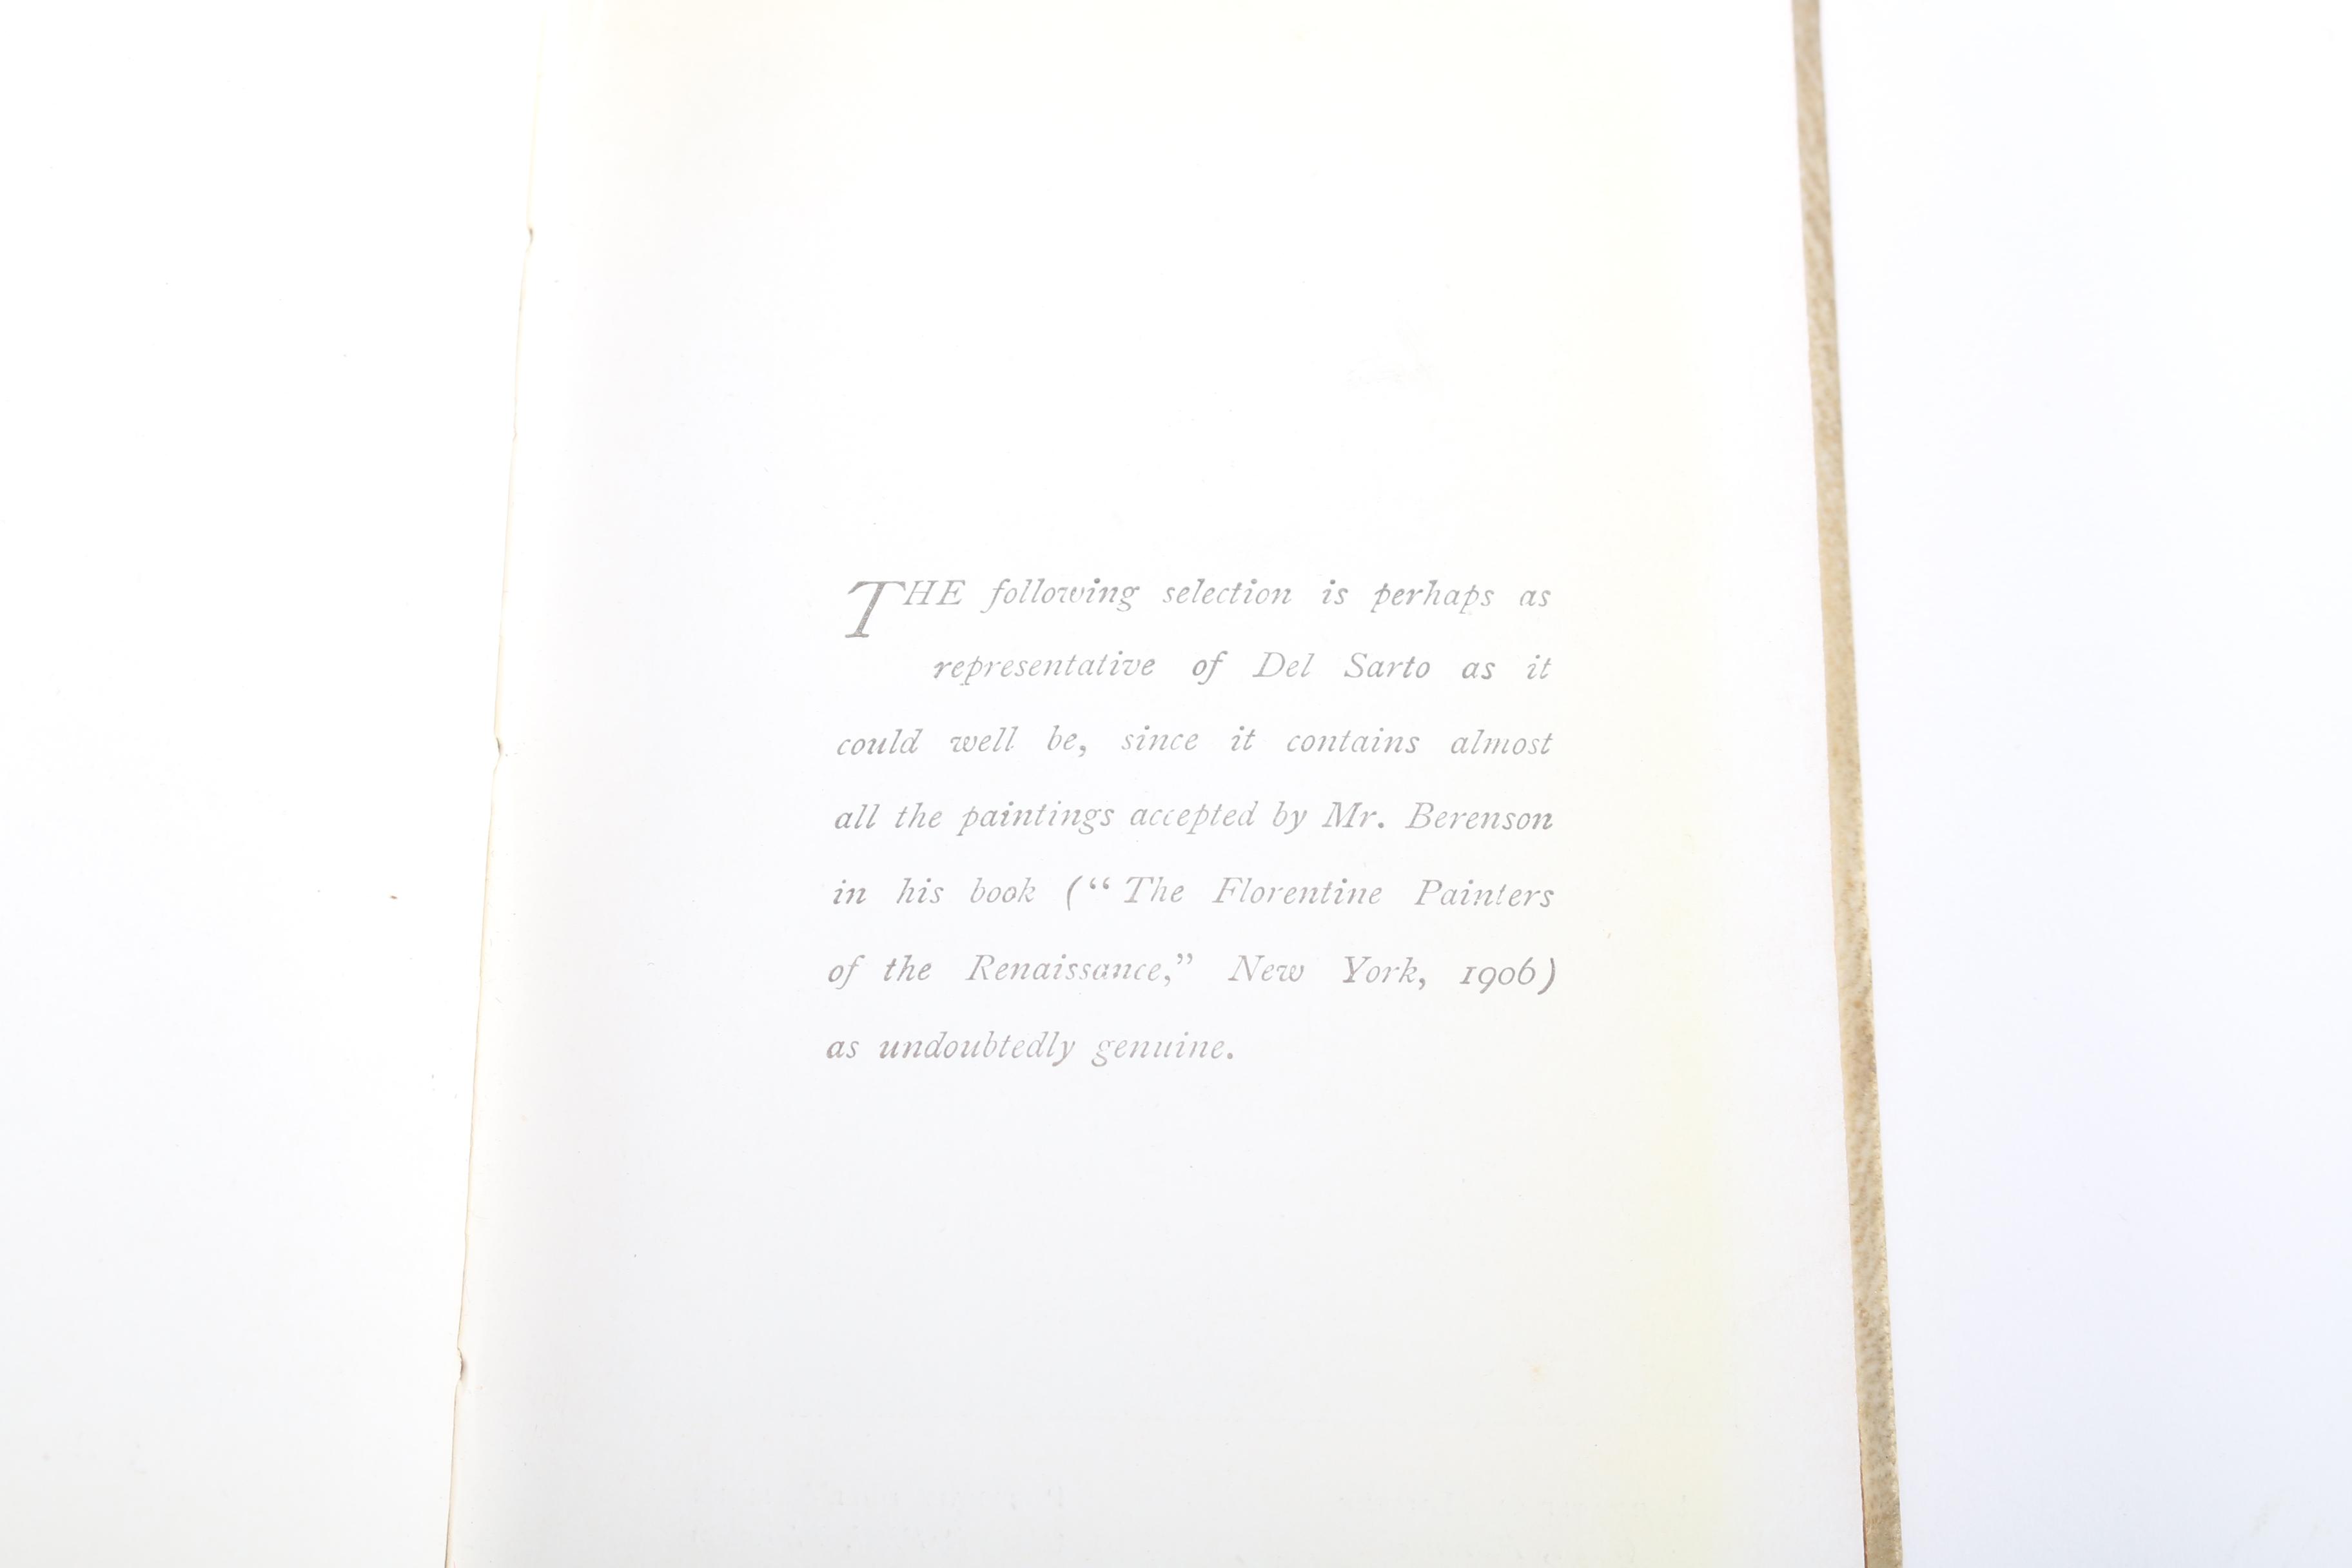 THE following selection is perhaps as
representative of Del Sarto as it
could well be, since it contains almost
all the paintings accepted by Mr. Berenson
in his book (“The Florentine Painters
of the Renaissance,” New York, 1906)
as undoubtedly genuine.